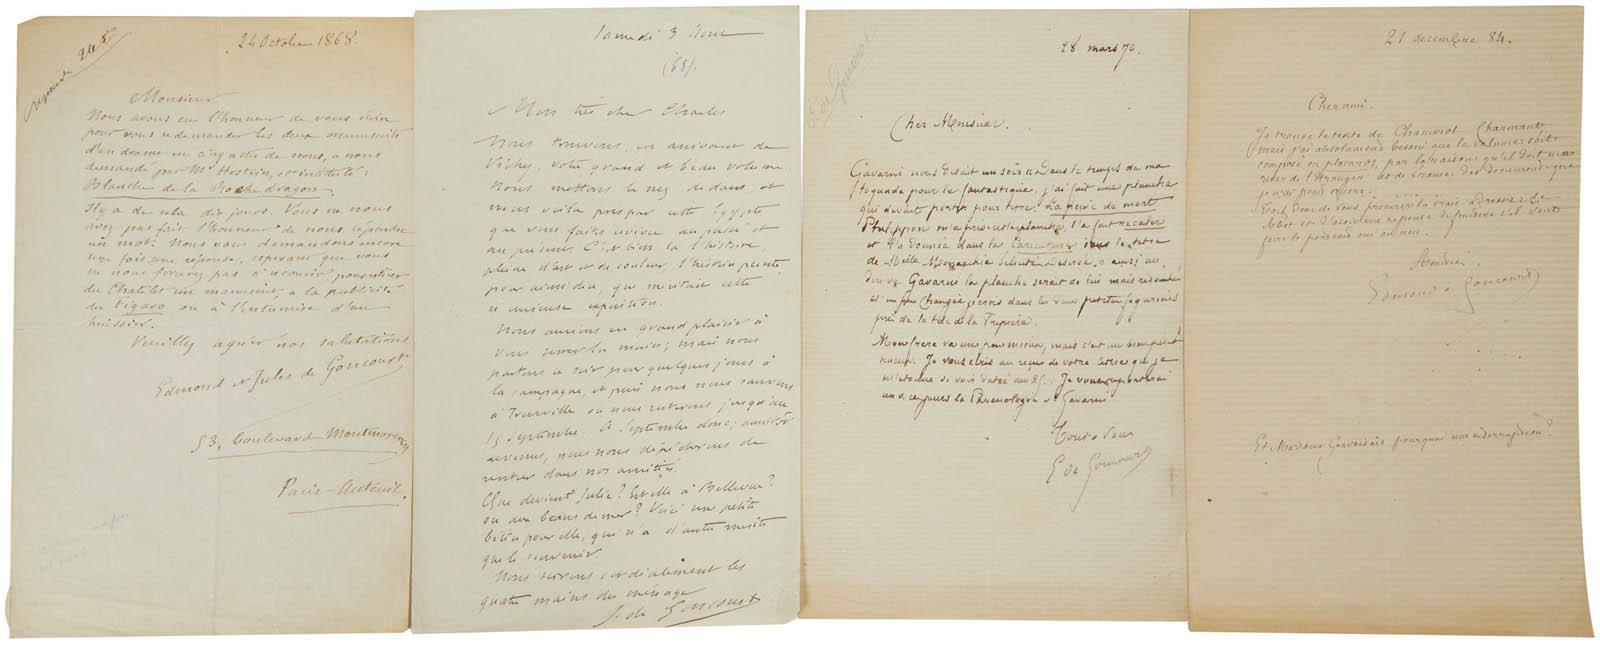 24 Octobre 1868.
Monsieur
Nous avons eu l'honneur de vous écrire
pour vous redemander les deux manuscrits
d'un drame en cinq actes de nous, a nous
demandé par Mr Hostein, et intitulé:
Blanche de la Rochedragon.
Il y a de cela dix jours. Vous ne nous
avez pas fait l'honneur de nous répondre
un mot. Nous vous demandons encore
une fois une réponse, espérant que vous
ne nous forcerez pas à recourir, pour retirer
du Chatelet un manuscrit, a la publicité
du Figaro ou à l'entremise d'un
huissier.
Veuillez agréer nos salutations
Edmond et Jules de Goncourt
53, boulevard Montmorency
Paris-Auteuil.
Samedi 3 Aout
(68).
Mon très cher Charles
Nous trouvons, en arrivant de
Vichy, votre grand et beau volume.
Nous mettons le nez dedans, et
nous voilà pris par cette Egypte
que vous faites revivre au passé et
au présent. C'est bien là l'histoire,
pleine d'art et de couleur, l'histoire peinte,
pour ainsi dire, que méritait cette
si curieuse exposition.
Nous aurions eu grand plaisir à
vous serrer la main; mais nous
partons ce soir pour quelques jours à
la campagne, et puis nous nous sauvons
à Trouville ou nous resterons jusqu'au
15 Septembre. A Septembre donc; aussitôt
revenus, nous nous dépêcherons de
rentrer dans nos amitiés.
Que devient Julie? Est elle à Bellevue?
ou aux bains de mer? Voici une petite
bêtise pour elle, qui n'a d'autre mérite
que le souvenir.
Nous serrons cordialement les
quatre mains du ménage
J. de Goncourt
E de Goncourt
28 mars 70.
Cher Monsieur.
Gavarni nous disait un soir: Dans le temps de ma
toquade pour le fantastique, j'ai fait une planche
qui devait porter pour titre: La peine de mort
Philippon m'a pris cette planche, l'a fait
et l'a donnée dans la Caricature sous le titre
de Melle Monarchie
Gavarni la planche serait de lui mais
et un peu changée je crois dans les deux petites figurines
près de la tête de la
Mon frère va un peu mieux, mais c'est un
Je vous écris au reçu de votre lettre que je
m'étonne de voir datée du 25. Je vous
un de ces jours la Phrenologie de Gavarni
Tout a vous
E de Goncourt
21 decembre 84.
Cher ami.
Je trouve le texte de Chamerot Charmant
mais j'ai absolument besoin que le volume soit
composé en placards, par la raison qu'il doit
de l'étranger et de France des documents que
je n'ai pas encore.
réponse
Amitiés
Edmond de Goncourt
Et Madame Gervaisais pourquoi son interruption?